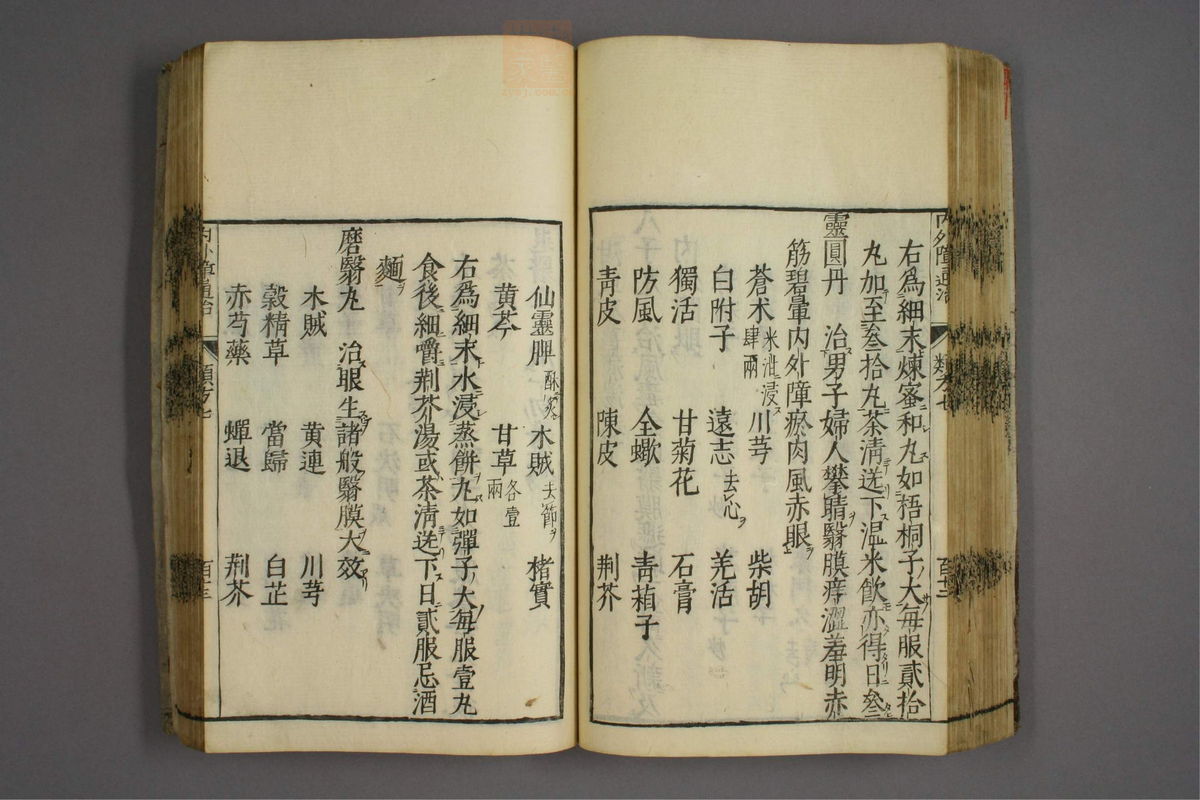 右爲細末煉蜜和丸如梧桐子大每服貳拾
丸加至叄拾丸茶清送下温米飲亦得日叄
靈圓丹 治男子婦人攀睛翳膜痒澀羞明赤
筋碧暈内外障瘀肉風赤眼
蒼术米泔浸肆兩 川芎 柴胡
白附子 遠志去心 羌活
獨活 甘菊花 石膏
防風 全蠍 靑葙子
靑皮 陳皮 荆芥
仙靈脾酥炙 木賊去節 楮實
黄芩 甘草各壹兩
右爲細末水浸蒸餅丸如彈子大每服壹丸
食後細嚼荆芥湯或茶清送下日貳服忌酒
麵
磨翳丸 治眼生諸般翳膜大效
木賊 黄連 川芎
穀精草 當歸 白芷
赤芍藥 蟬退 荆芥